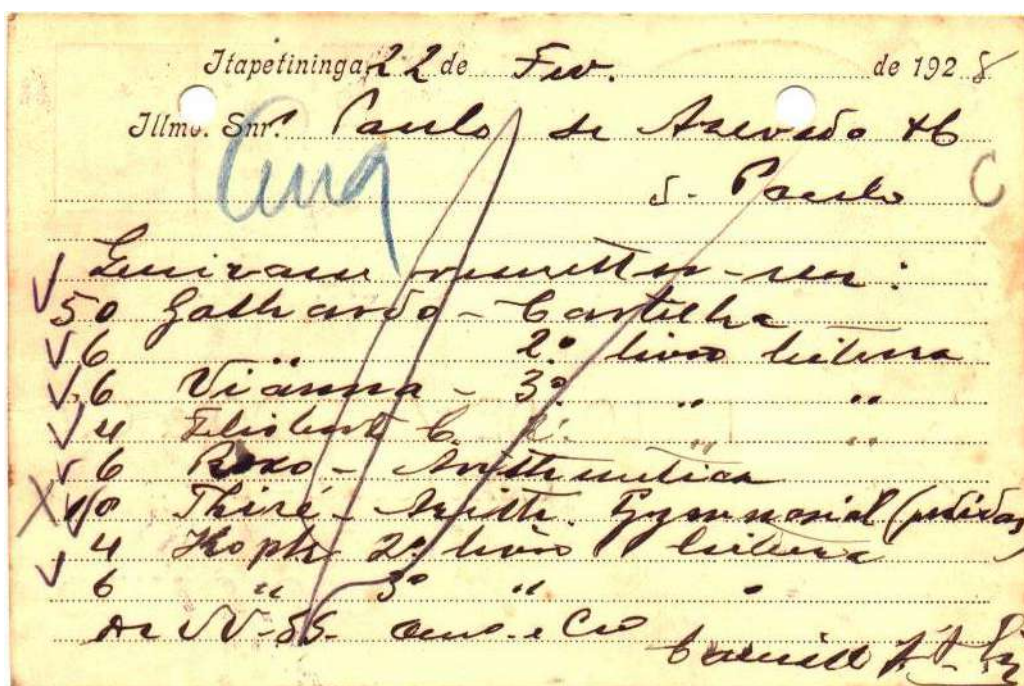 Itapetininga, 22 de Fev. de 1928
Illmo. Snr. Paulo de Azevedo & C
S. Paulo C
Queiram remetter-me:
50 Galhardo - Cartilha
6 " 2º livro leitura
6 Vianna - 3º " "
4 " "
6 Roxo - Arithmetica
10 Thiré - Arith. Gymnasial (pedidas)
4 Kopke 2º livro leitura
6 " 3º " "
De VV. SS. Amo. e Cro